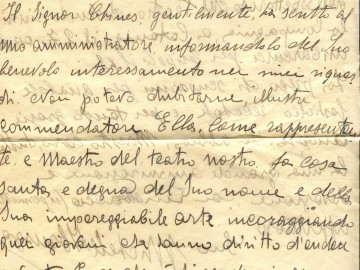 Il Signor Chines, gentilmente, ha scritto al
mio amministratore informandolo del Suo
benevolo interessamento nei miei riguar
di. Non potevo dubitarne, Illustre
Commendatore. Ella, come rappresentan
te e Maestro del teatro nostro fa cosa
santa e degna del Suo nome e della
Sua impareggiabile arte incoraggiando
quei giovani che hanno diritto d'essere